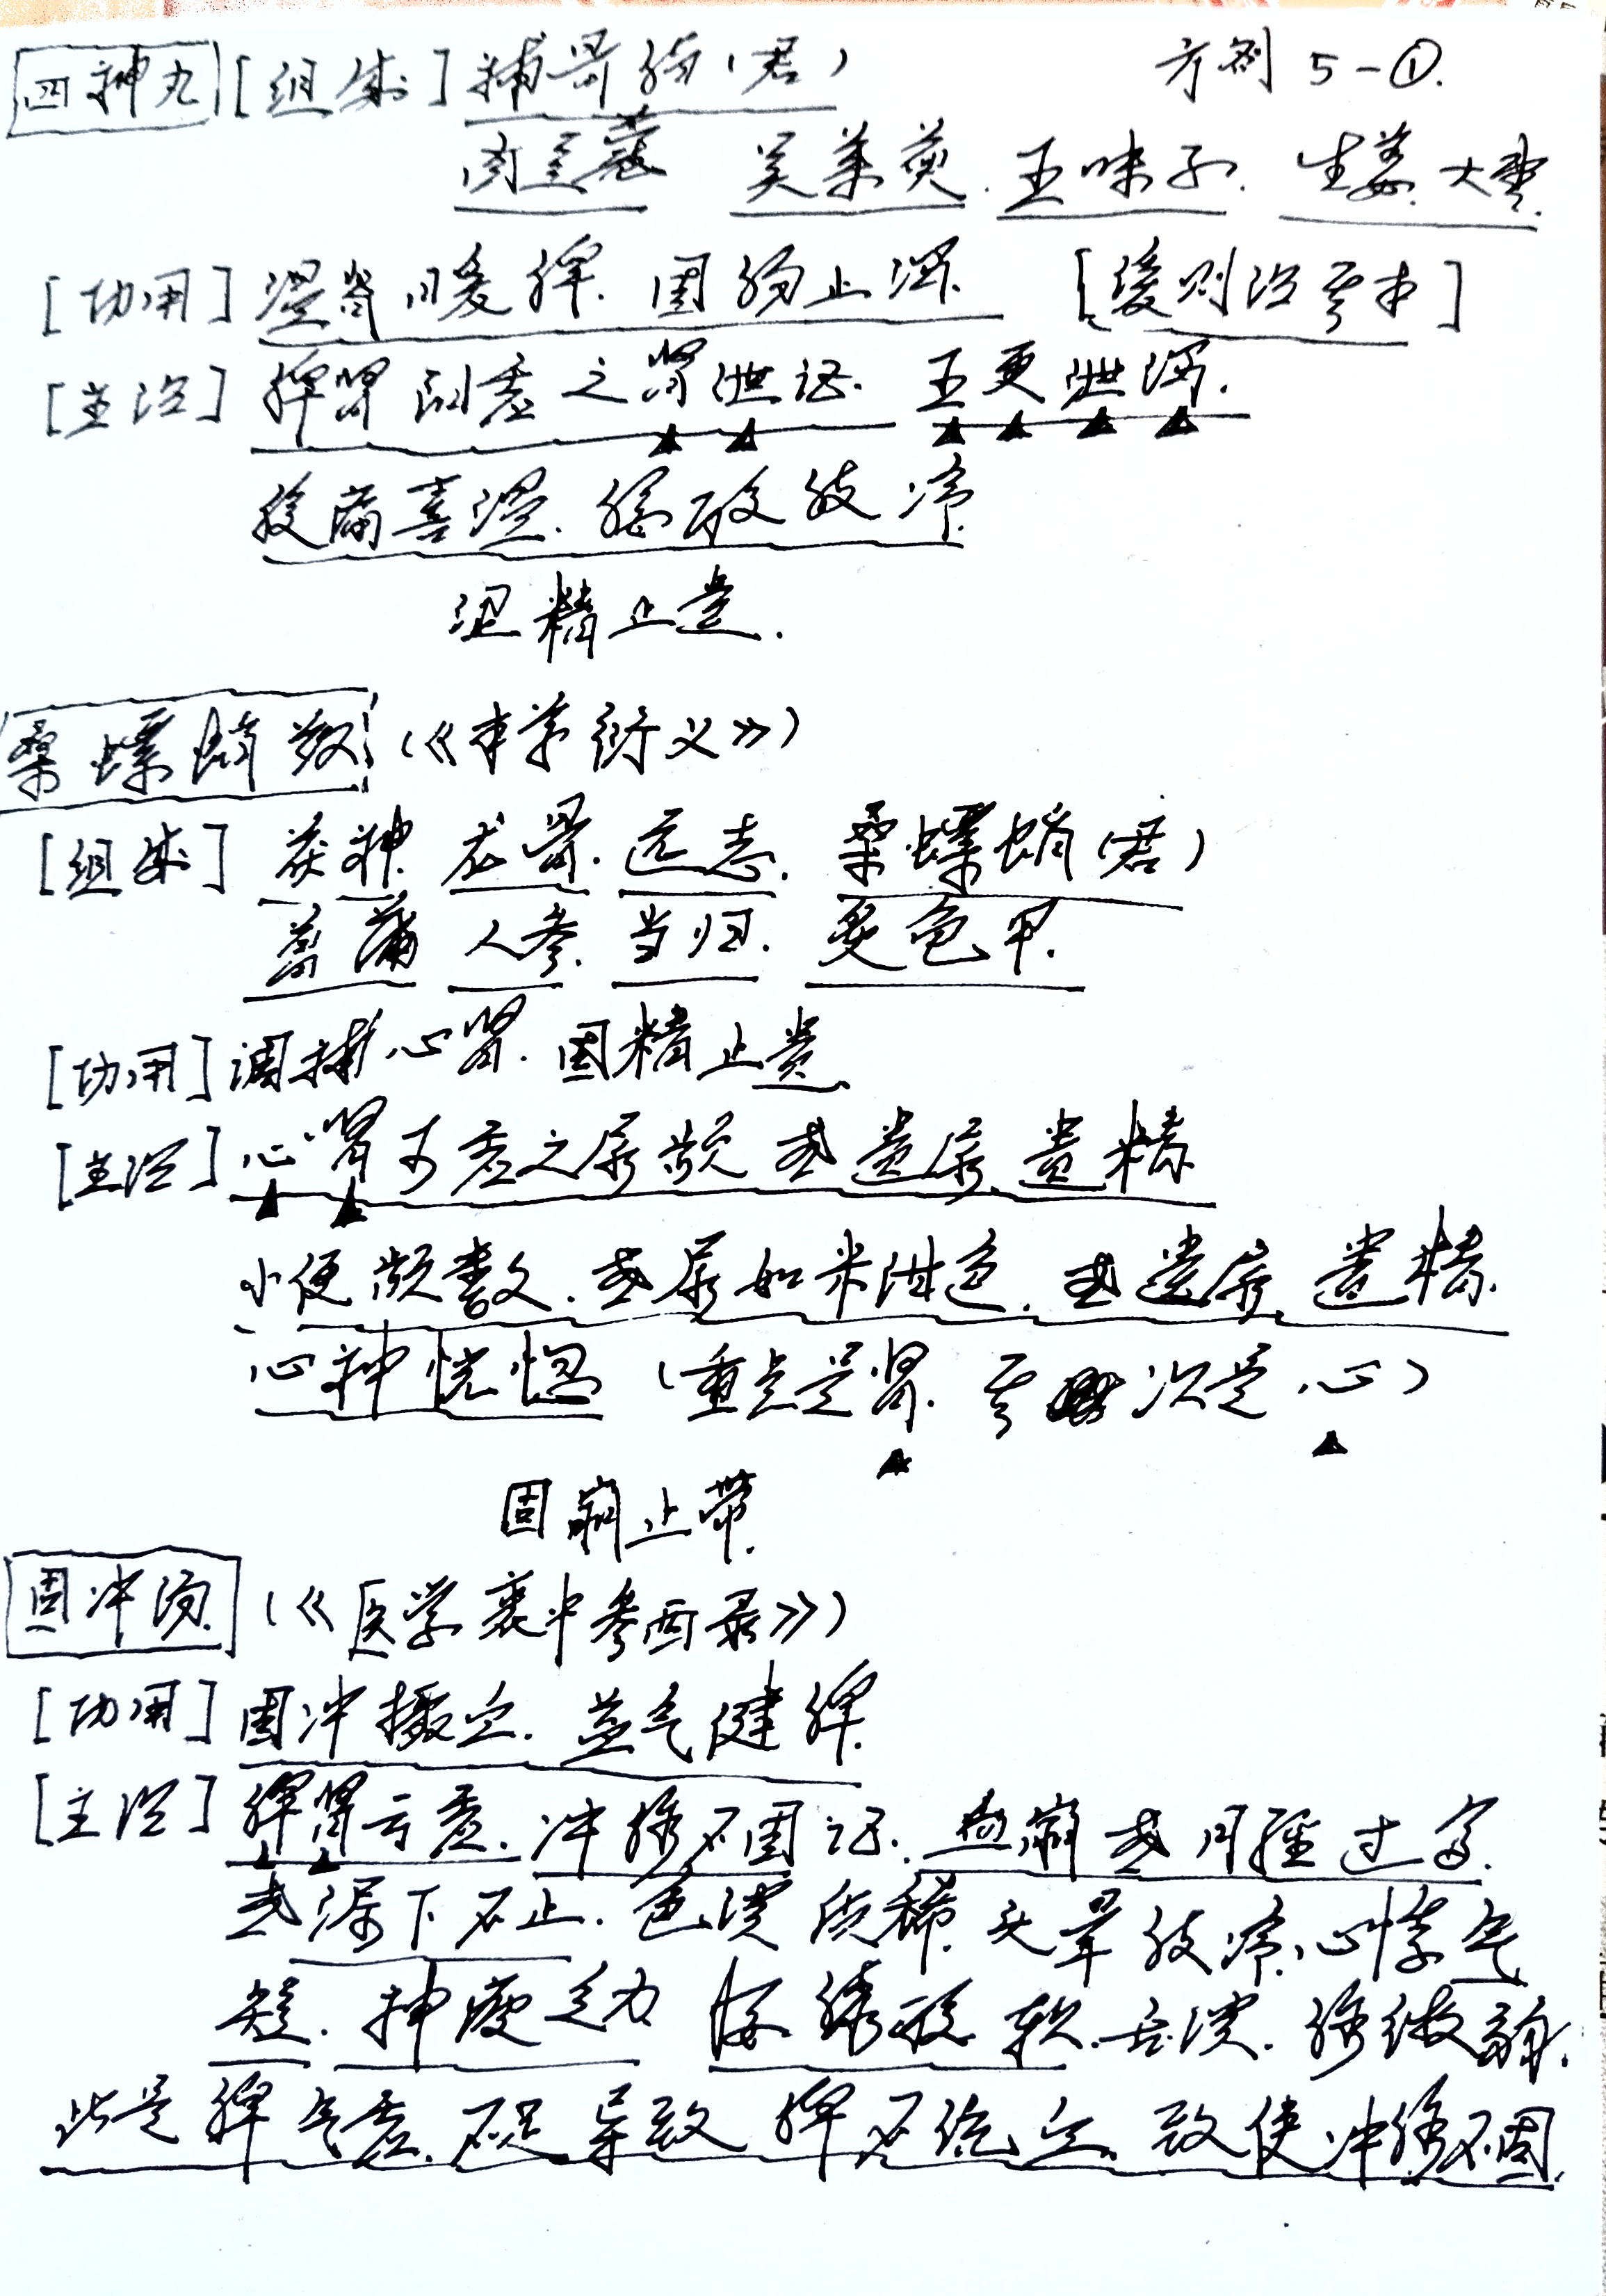 四神丸 [组成] 补骨脂(君) 方剂 5-①.
肉豆蔻 吴茱萸. 五味子. 生姜. 大枣.
[功用] 温肾暖脾. 固肠止泻. [缓则治其本]
[主治] 脾肾阳虚之肾泄证. 五更泄泻.
腹痛喜温. 腰酸肢冷
涩精止遗.
桑螵蛸散 (《本草衍义》)
[组成] 茯神. 龙骨. 远志. 桑螵蛸(君)
菖蒲 人参. 当归. 炙龟甲.
[功用] 调补心肾. 固精止遗
[主治] 心肾不虚之尿频或遗尿. 遗精
小便频数. 或尿如米泔色. 或遗尿. 遗精.
心神恍惚 (重点是肾. 其次是心)
固崩止带.
固冲汤 (《医学衷中参西录》)
[功用] 固冲摄血. 益气健脾.
[主治] 脾肾亏虚. 冲脉不固证. 血崩或月经过多.
或漏下不止. 色淡质稀. 头晕肢冷. 心悸气
短. 神疲乏力 腰膝酸软. 舌淡. 脉微弱.
此是脾气虚. 不足导致脾不统血. 致使冲脉不固.